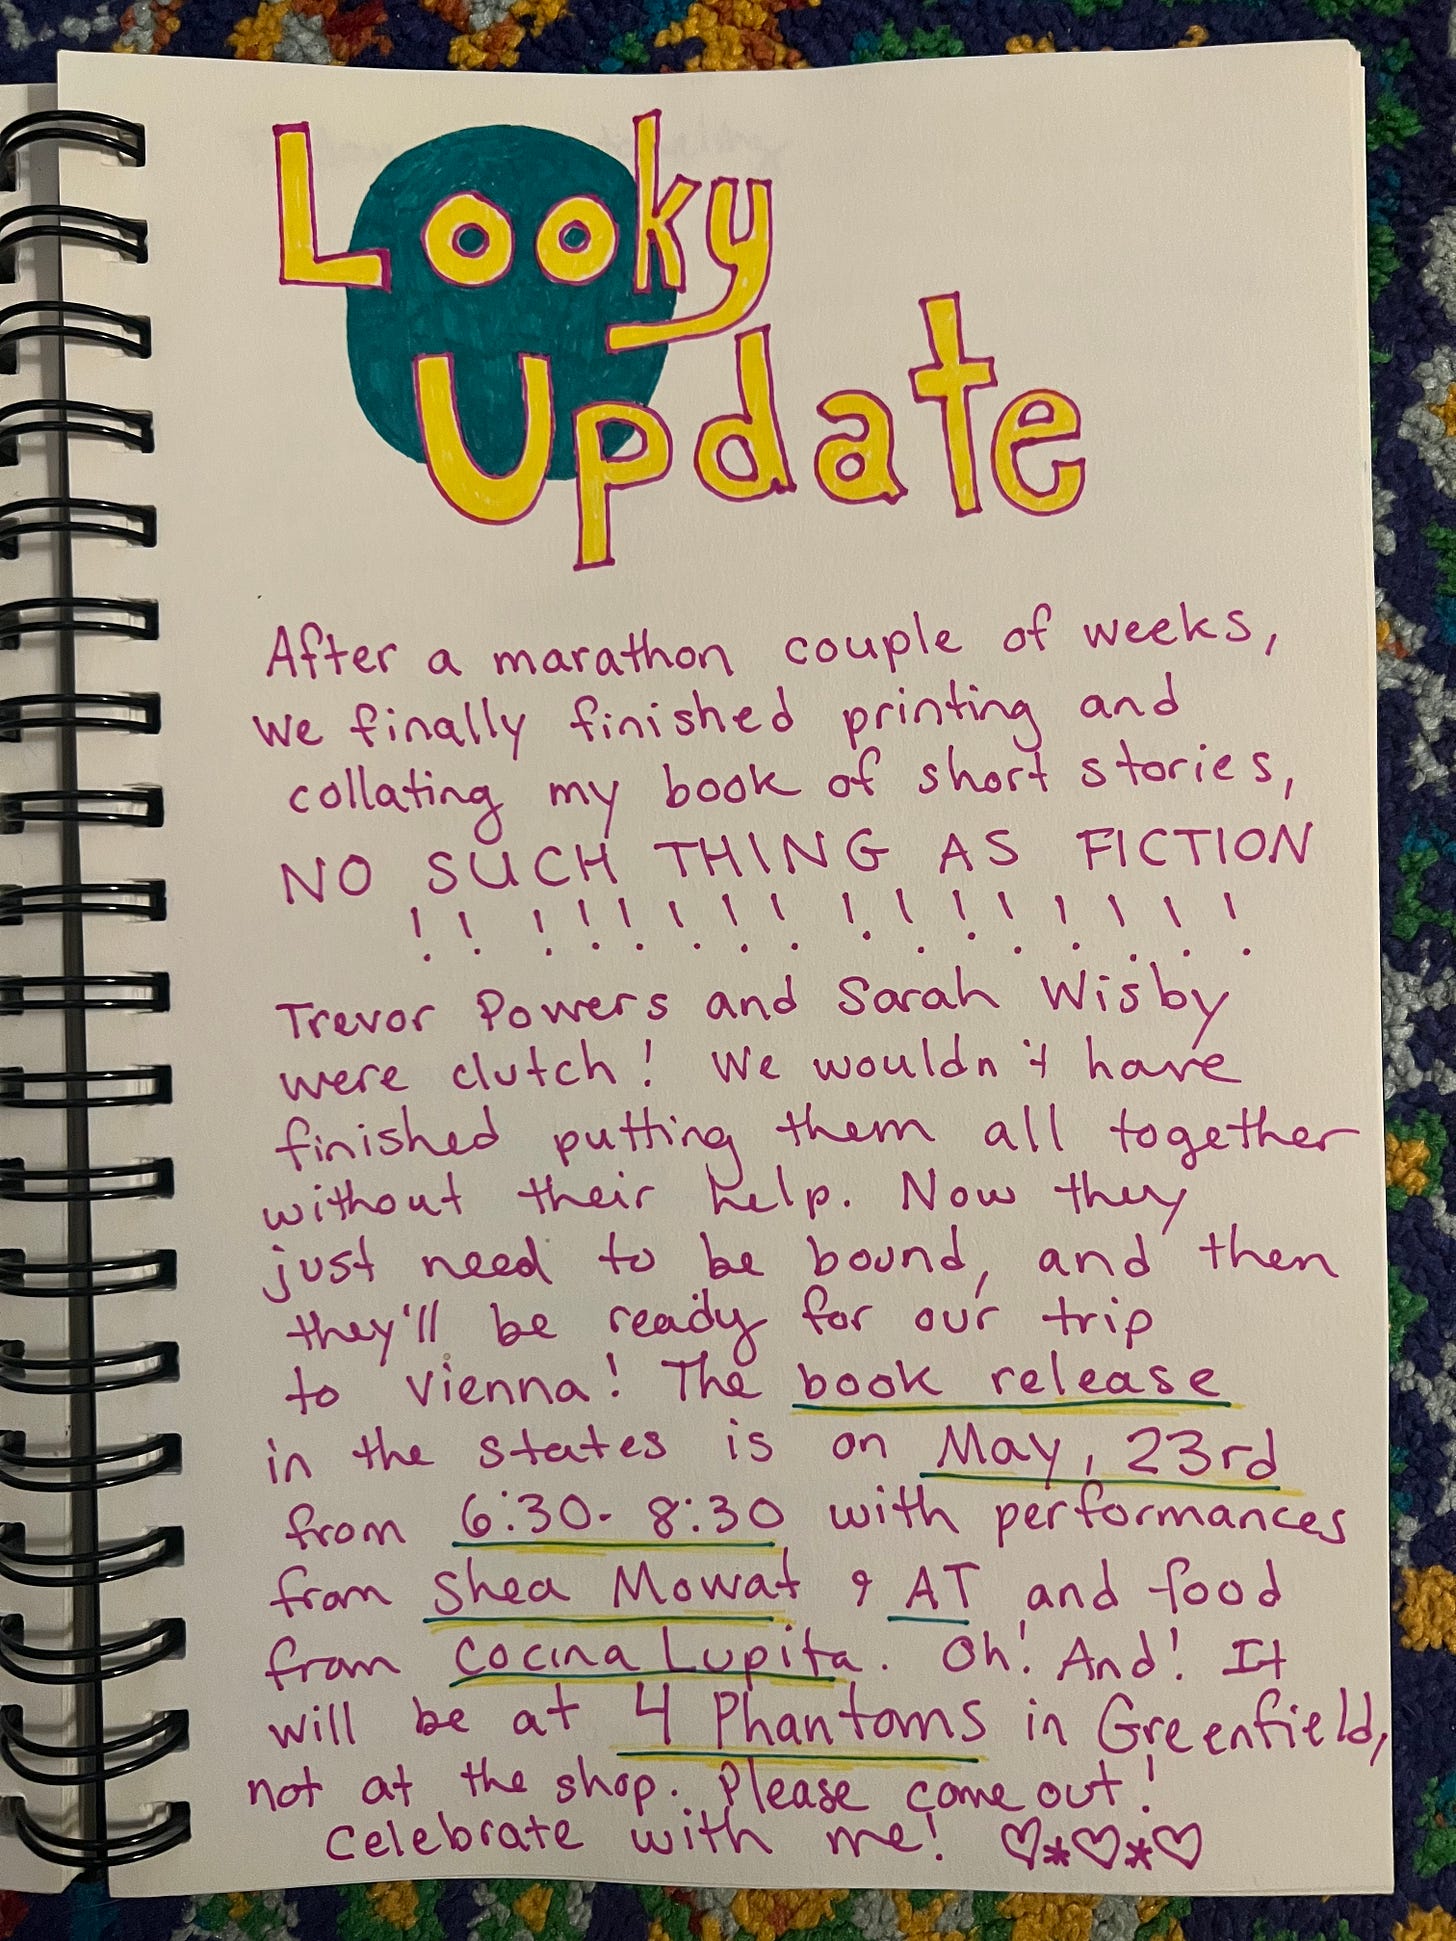 Looky
Update
After a marathon couple of weeks,
we finally finished printing and
collating my book of short stories,
NO SUCH THING AS FICTION
! ! ! ! ! ! ! ! ! ! ! ! ! ! ! !
Trevor Powers and Sarah Wisby
were clutch! We wouldn't have
finished putting them all together
without their help. Now they
just need to be bound, and then
they'll be ready for our trip
to Vienna! The book release
in the states is on May, 23rd
from 6:30-8:30 with performances
from Shea Mowat & AT and food
from Cocina Lupita. Oh! And! It
will be at 4 Phantoms in Greenfield,
not at the shop. Please come out!
Celebrate with me! ♡*♡*♡